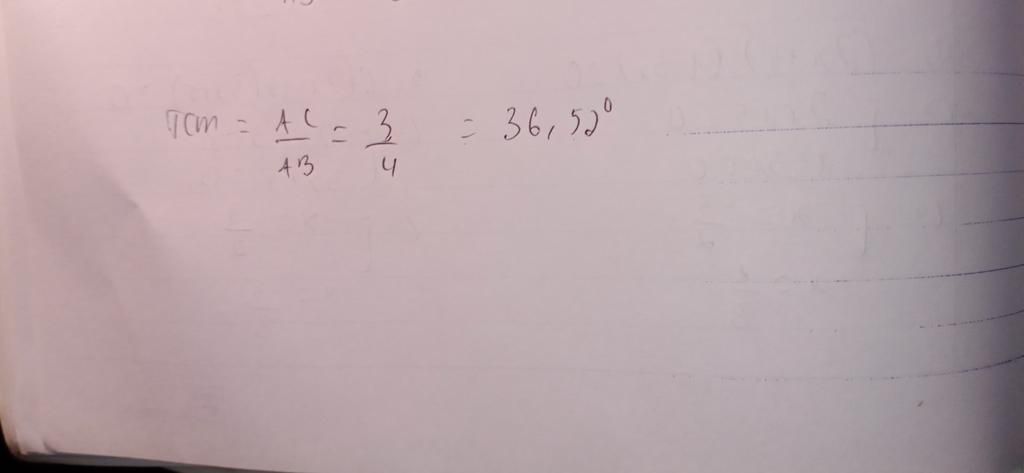 TCM = AC / AB = 3 / 4 = 36,52°